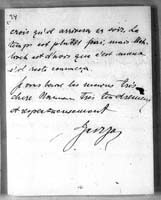 crois qu'il arrivera ce soir. Le
temps est plutôt frais, mais
est d'avis que c'est
s'il reste
Je vous baise les mains très
chère Maman, très tendrement
et respectueusement
Georges